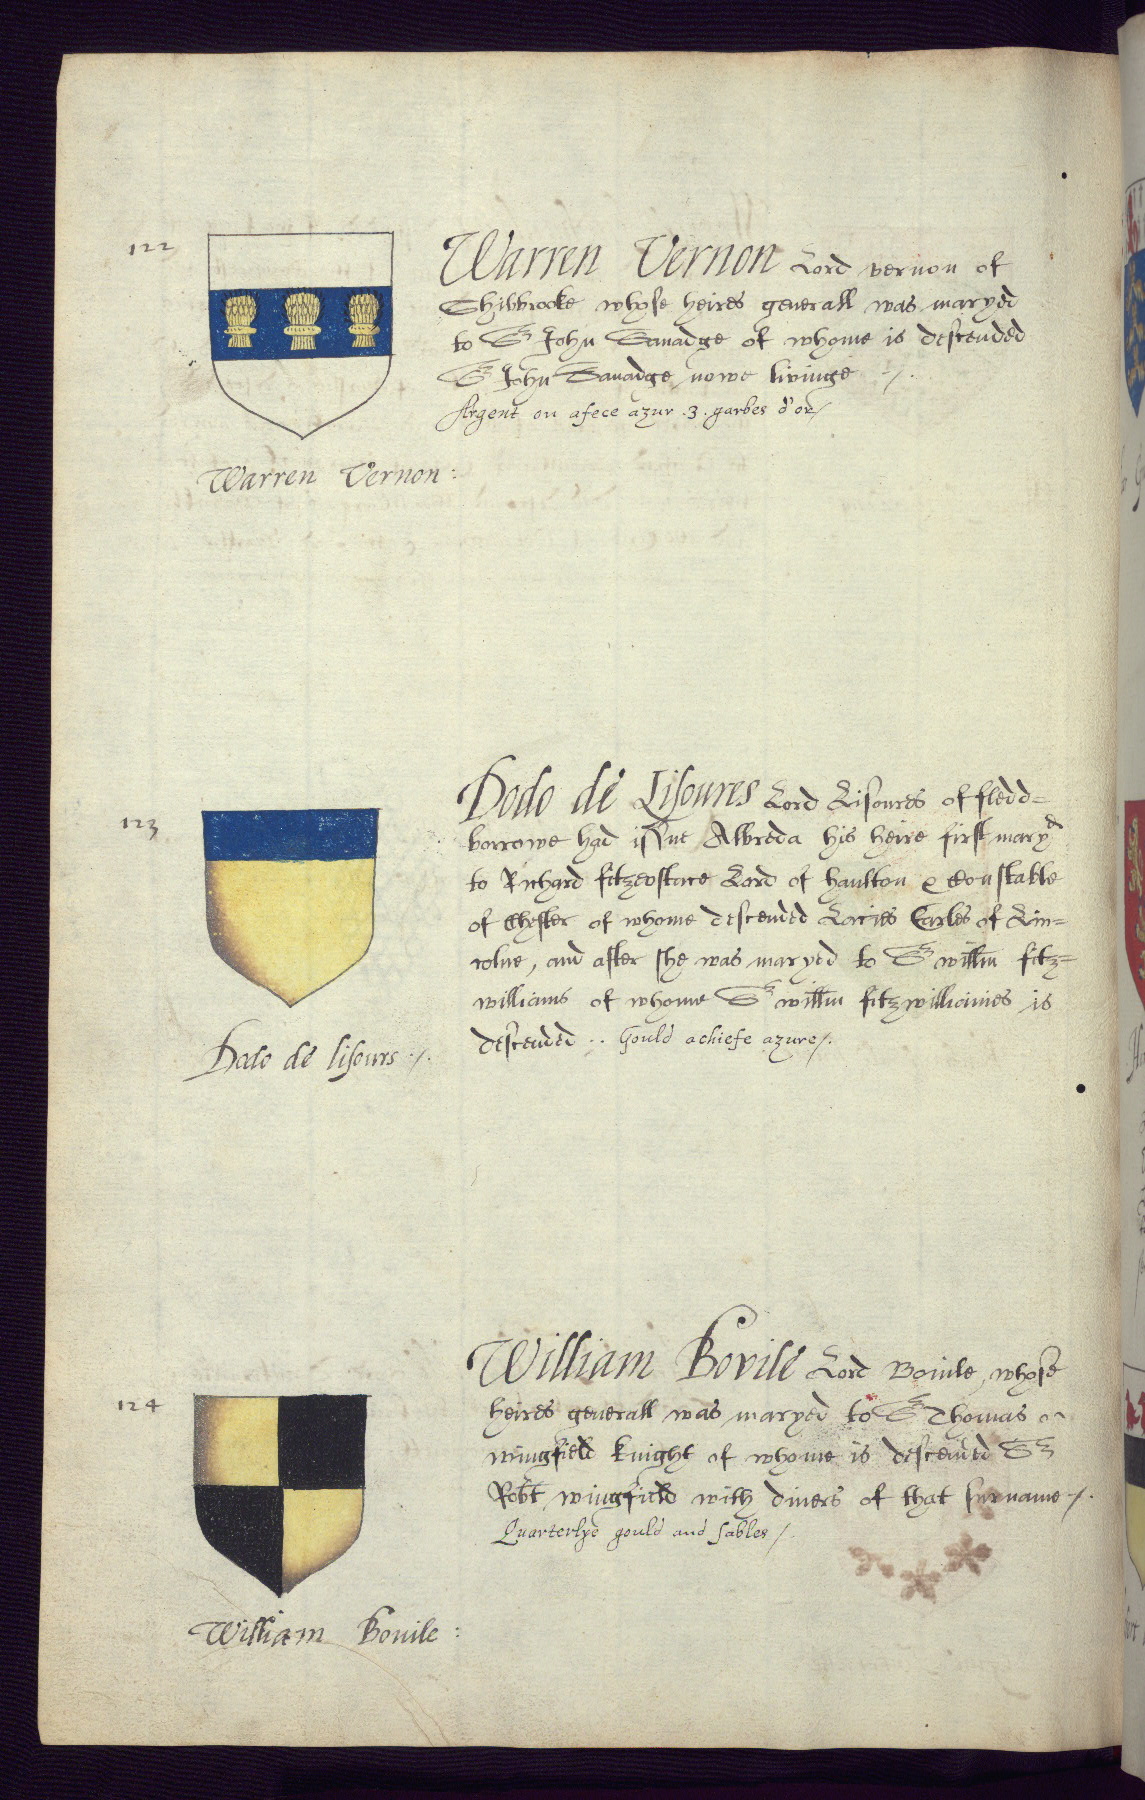 122
Warren Vernon Lord vernon of
Shibbrooke whose heires generall was maryed
to Sr John Sauadge of whome is descended
Sr John Sauadge nowe livinge
Argent on a fece azur .3. garbes d'or
Warren Vernon:
123
Dodo de Lisoures Lord Lisoures of fledd=
borrowe had issue Albreda his heire first maryed
to Richard fitzeostace Lord of haulton & Constable
of Chester of whome descended Lacies Earles of Lin=
colne, and after she was maryed to Sr willm fitz=
williams of whome Sr willm fitzwilliames is
descended .. Gould a chiefe azure
Dodo de lisours
124
William Bovile Lord Bouile, whose
heires generall was maryed to Sr Thomas
wingfield knight of whome is descended Sr
Robt wingfield with diuers of that surname
Quarterlye gould and sables
William Bouile: